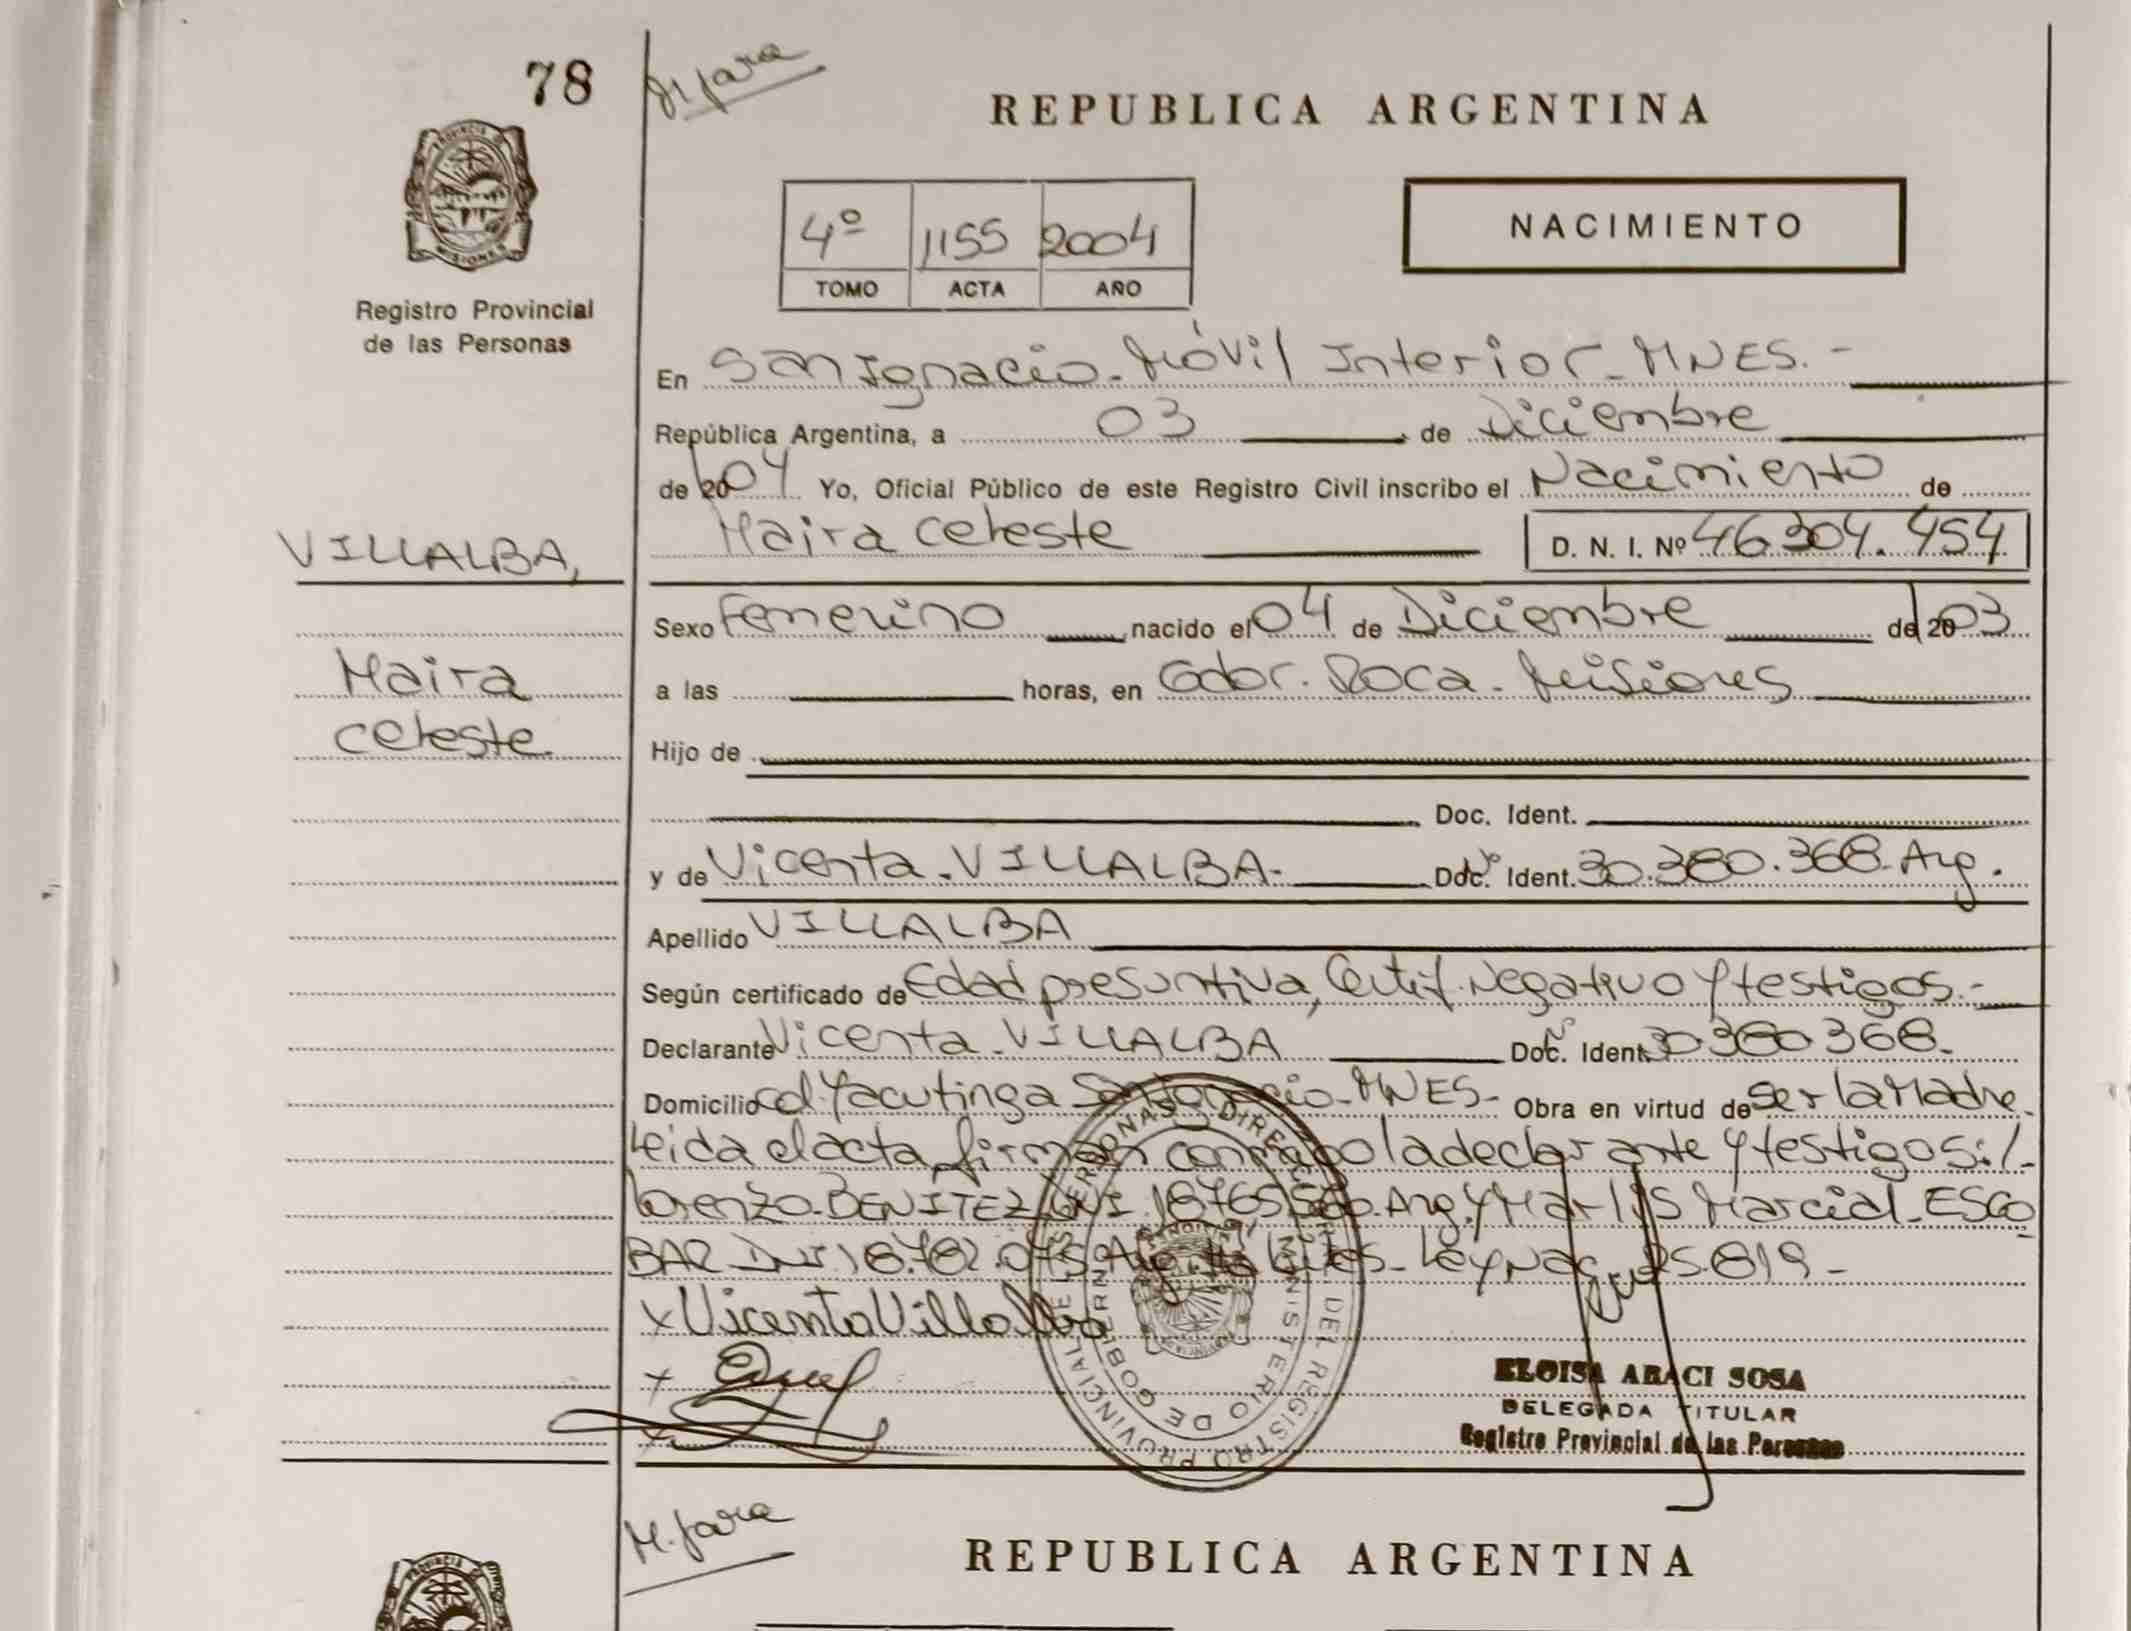 78
M. Jara
REPUBLICA ARGENTINA
PROVINCIA DE MISIONES
Registro Provincial
de las Personas
4º 1155 2004
TOMO ACTA AÑO
NACIMIENTO
En San Ignacio - Móvil Interior - MNES. -
República Argentina, a 03 de Diciembre
de 2004 Yo, Oficial Público de este Registro Civil inscribo el Nacimiento de
Maira Celeste D. N. I. Nº 46.304.454
VILLALBA,
Maira
Celeste.
Sexo Femenino nacido el 04 de Diciembre de 2003
a las horas, en Gdor. Roca - Misiones
Hijo de
Doc. Ident.
y de Vicenta - VILLALBA - Doc. Ident. Nº 30.380.368 - Arg.
Apellido VILLALBA
Según certificado de Edad presuntiva, Certif. Negativo y testigos. -
Declarante Vicenta - VILLALBA Doc. Ident. Nº 30380368 -
Domicilio Col. Yacutinga San Ignacio - MNES - Obra en virtud de Ser la Madre -
Leida el acta, firman conmigo la declarante y testigos: /-
Lorenzo - BENITEZ DNI Arg. y Marcial - ESCO
BAR DNI 18.782.075 Ley Nac. 25.819 -
x Vicenta Villalba
x
x
REGISTRO PROVINCIAL DE LAS PERSONAS
MINISTERIO DE GOBIERNO
ELOISA ARACI SOSA
DELEGADA TITULAR
Registro Provincial de las Personas
M. Jara
REPUBLICA ARGENTINA